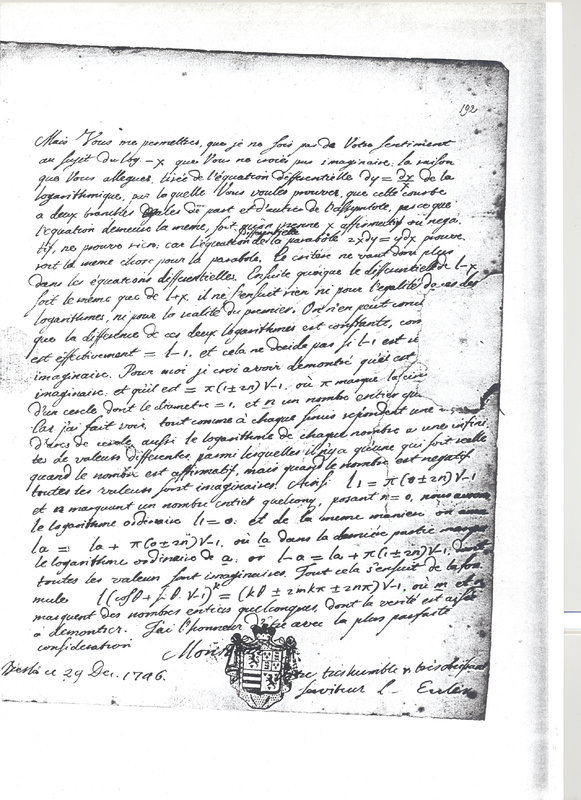 192
Mais Vous me permettres, que je ne sois pas de Votre sentiment
au sujet du log. – x que Vous ne croiés pas imaginaire: la raison
que Vous allegues, tirée de l'équation differentielle dy = dx/x de la
logarithmique, par laquelle Vous voules prouver, que cette courbe
a deux branches égales de part et d'autre de l'assymtote, parceque
l'equation demeure la meme, soit qu'on prenne x affirmatif ou nega
tif, ne prouve rien; car l'équation differentielle de la parabole 2xdy = ydx prouve
roit la meme chose pour la parabole. Le critere ne vaut donc plus
dans les équations differentielles. Ensuite quoique le differentiel de l–x
soit le même que de l+x, il ne s'ensuit rien ni pour l'egalité de ces
logarithmes, ni pour la realité du premier. On n'en peut
que la difference de ces deux logarithmes est constante,
est effectivement = l–1, et cela ne decide pas si l–1 est
imaginaire. Pour moi je croi avoir demontré qu'il est
imaginaire, et qu'il est = π(1±2n)√–1, où π marque la
d'un cercle dont le diametre = 1, et n un nombre entier
Car j'ai fait voir, tout comme à chaque sinus repondent une
d'arcs de cercle, aussi le logarithme de chaque nombre a une infini
té de valeurs differentes, parmi lesquelles il n'y a qu'une qui soit reelle
quand le nombre est affirmatif, mais quand le nombre est negatif
toutes les valeurs sont imaginaires. Ainsi l1 = π(0±2n)√–1
et n marquant un nombre entier quelconq, posant n=0, nous aurons
le logarithme ordinaire l1=0. et de la meme maniere on aura
la = la + π(0±2n)√–1, où la dans la derniére partie marque
le logarithme ordinaire de a, or l–a = la + π(1±2n)√–1, dont
toutes les valeurs sont imaginaires. Tout cela s'ensuit de la for
mule l(cosθ + sin θ.√–1)^k = (kθ ± 2mkπ ± 2nπ)√–1, où m et n
marquent des nombres entiers quelconques, dont la verité est aisée
à demontrer. J'ai l'honneur d'etre avec la plus parfaite
consideration
Mons
tre treshumble & tres obeissant
ce 29 Dec. 1746.
serviteur L. Euler